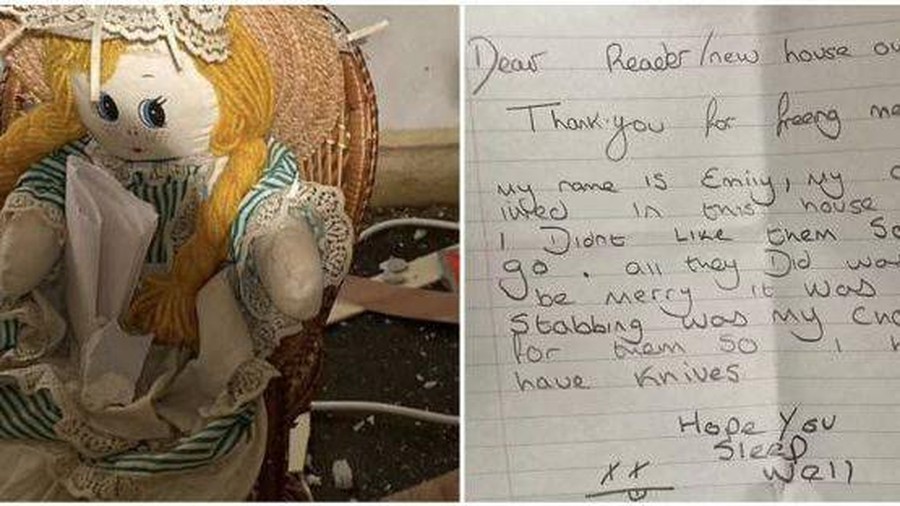 Dear Reader/new house
Thank you for freeng me
my name is Emily, my
lived in this house
I Didnt Like them So
go . all they Did was
be merry it was
Stabbing was my
for them so I
have Knives
Hope You
Sleep
Well
XX